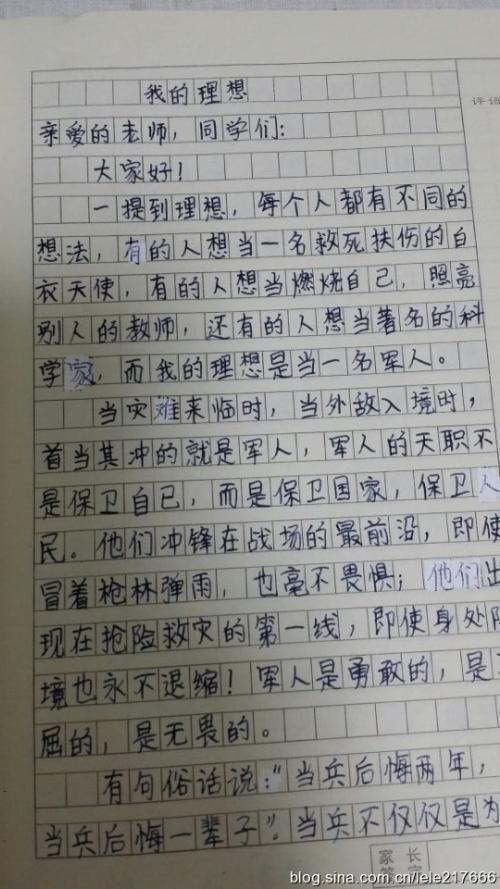 我的理想
亲爱的老师，同学们：
大家好！
一提到理想，每个人都有不同的
想法，有的人想当一名救死扶伤的白
衣天使，有的人想当燃烧自己，照亮
别人的教师，还有的人想当著名的科
学家，而我的理想是当一名军人。
当灾难来临时，当外敌入境时，
首当其冲的就是军人，军人的天职不
是保卫自己，而是保卫国家，保卫人
民。他们冲锋在战场的最前沿，即使
冒着枪林弹雨，也毫不畏惧；他们出
现在抢险救灾的第一线，即使身处
境也永不退缩！军人是勇敢的，是
屈的，是无畏的。
有句俗话说：“当兵后悔两年，
当兵后悔一辈子”。当兵不仅仅是为
评语
家长
blog.sina.com.cn/lele217666